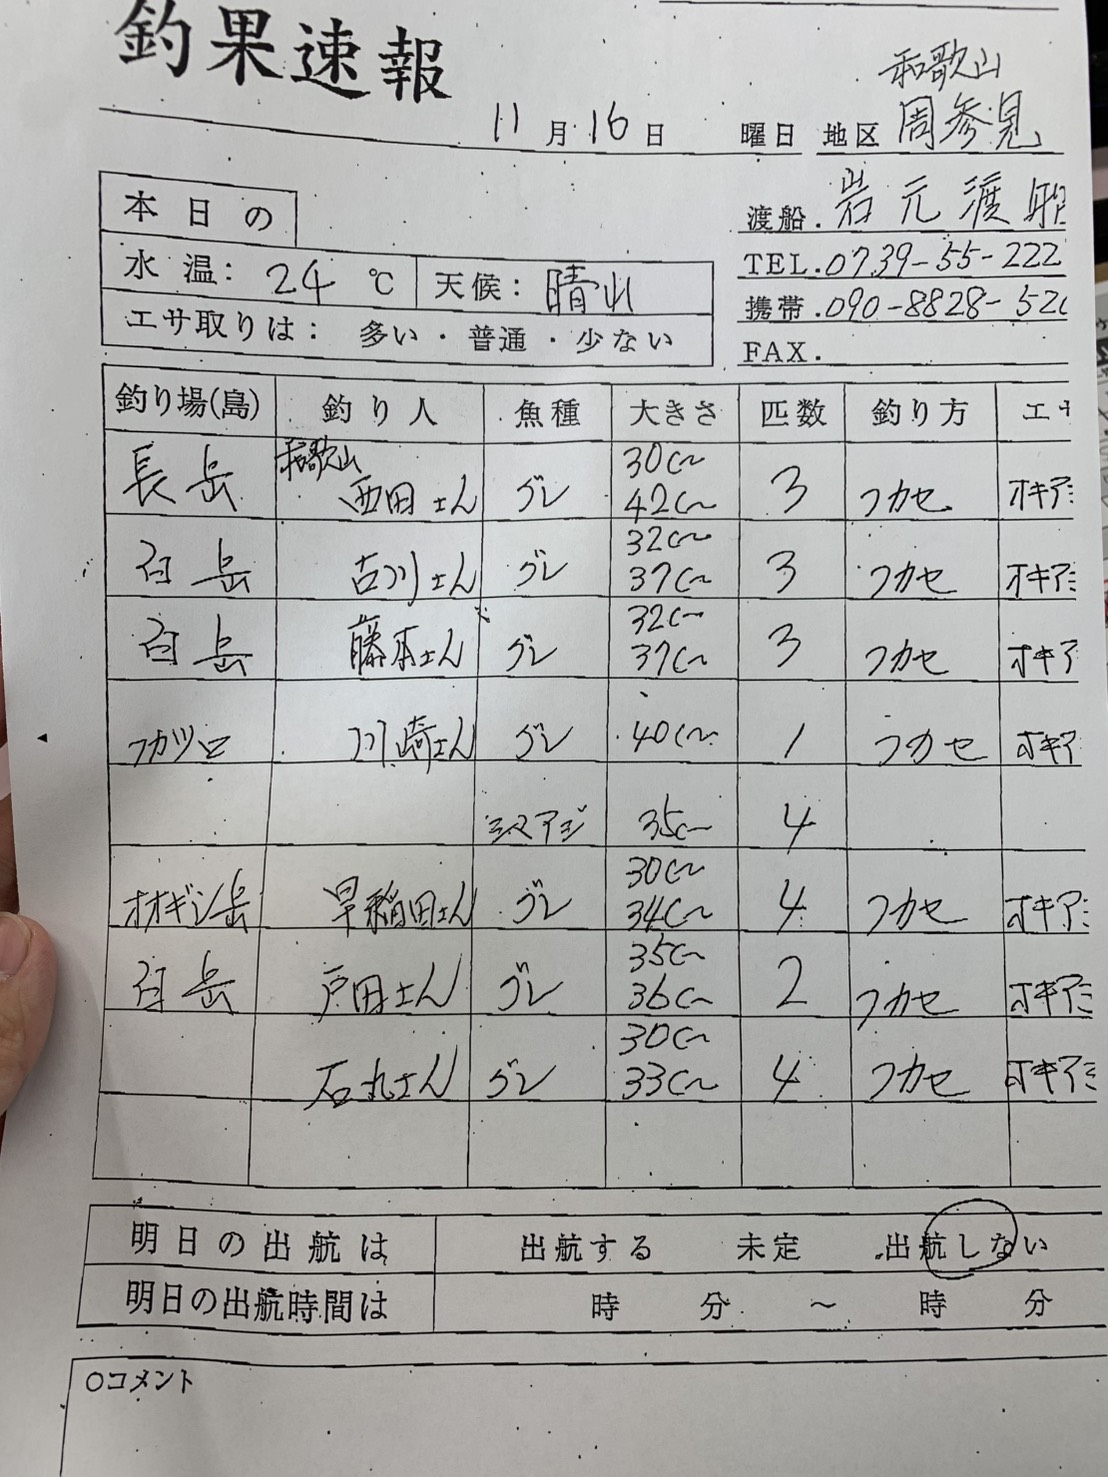 釣果速報
11月16日 曜日 地区 和歌山 周参見
渡船.岩元渡船
TEL.0739-55-222
携帯.090-8828-520
FAX.
本日の
水温: 24 ℃ 天候: 晴れ
エサ取りは: 多い・普通・少ない
釣り場(島) 釣り人 魚種 大きさ 匹数 釣り方 エサ
長岳 和歌山 西田さん グレ 30㎝〜42㎝ 3 フカセ オキアミ
白岳 古川さん グレ 32㎝〜37㎝ 3 フカセ オキアミ
白岳 藤本さん グレ 32㎝〜37㎝ 3 フカセ オキア
フカツロ 川崎さん グレ 40㎝ 1 フカセ オキア
シマアジ 35㎝ 4
オオギシ岳 早稲田さん グレ 30㎝〜34㎝ 4 フカセ オキアミ
白岳 戸田さん グレ 35㎝〜36㎝ 2 フカセ オキアミ
石丸さん グレ 30㎝〜33㎝ 4 フカセ オキアミ
明日の出航は 出航する 未定 出航しない
明日の出航時間は 時 分 〜 時 分
○コメント